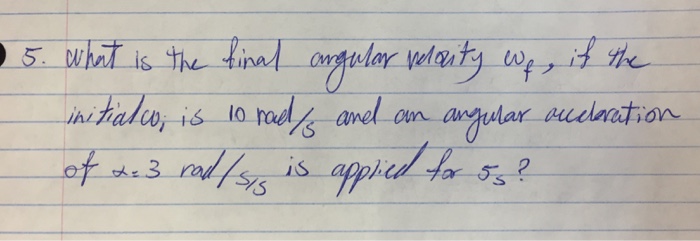 5. What is the final angular velocity ωf, if the
initial ωi is 10 rad/s and an angular acceleration
of α=3 rad/s/s is applied for 5s?